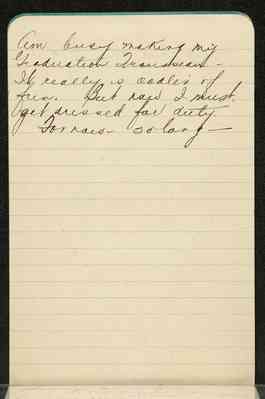 Am busy making my
Graduation Trousseau –
It really is oodles of
fun. But now I must
get dressed for duty.
For now – so long –